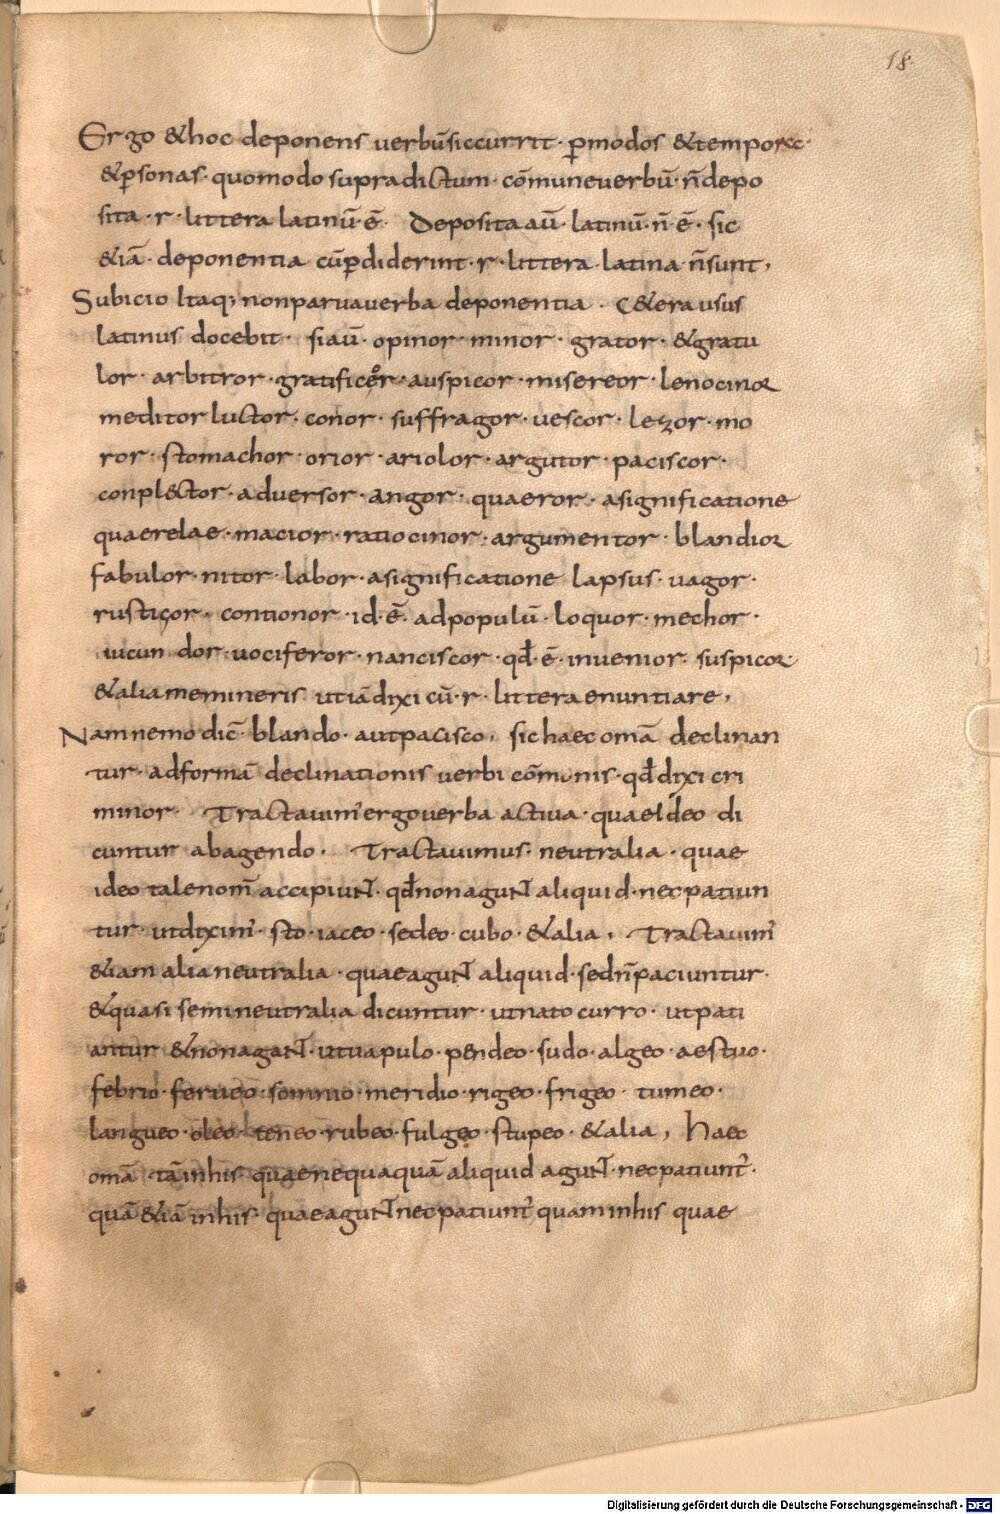 18.
Ergo &hoc deponens uerbū siccurrit · p̲modos &tempores·
&p̲sonas · quomodo supradictum · cōmuneuerbū · n̄depo
sita · r · littera latinū · ē · Deposita aū · latinū · n̄ · ē · sic
&iā · deponentia cūp̲diderint · r · littera latina n̄sunt,
Subicio Itaq; nonparuauerba deponentia · C&era usus
latinus docebit · siaū · opinor · minor · grator · &gratu
lor · arbitror · gratificor · auspicor · misereor · lenocinor
meditor luctor · conor · suffragor · uescor · lezor · mo
ror · stomachor · orior · ariolor · argutor · paciscor ·
conpl&ctor · aduersor · angor · quaeror · asignificatione
quaerelae · macior · ratiocinor · argumentor · blandior
fabulor · nitor · labor · asignificatione lapsus · uagor ·
rusticor · contionor · id · ē · adpopulū · loquor · mechor ·
iucundor · uociferor · nanciscor · qđ · ē · inuenior · suspicor ·
&aliamemineris utiādixi cū · r · littera enuntiare,
Nam nemo dic̄ · blando · autpacisco, sic haec omā declinan
tur · adformā declinationis uerbi cōmunis · qđdixi cri
minor · Tractauim' ergouerba actiua · quaeIdeo di
cuntur abagendo · Tractauimus · neutralia · quae
ideo talenom̄ accipiuNT · qđnonaguNT aliquid · necpatiun
tur · utdixim' · sto · iaceo · sedeo · cubo · &alia, Tractauim'
&iam alianeutralia · quaeaguNT aliquid · sedn̄paciuntur ·
&quasi semineutralia dicuntur · utnato curro · utpati
antur &nonagaNT · utuapulo · pendeo · sudo · algeo · aestuo ·
febrio · ferueo · somnio · meridio · rigeo · frigeo · tumeo ·
langueo · oleo · teneo · rubeo · fulgeo · stupeo · &alia, Haec
omā · tāinhis quaenequaquā aliquid aguNT · necpatiunt' ·
quā &iā inhis · quaeaguNT necpatiunt' quaminhis quae
Digitalisierung gefördert durch die Deutsche Forschungsgemeinschaft - DFG